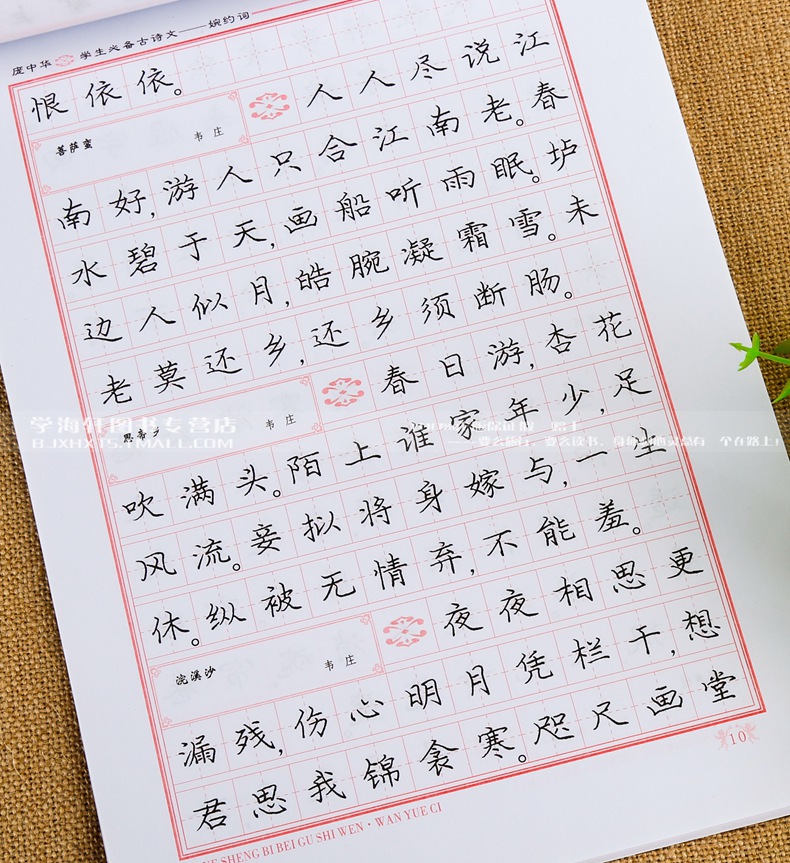 庞中华 学生必备古诗文——婉约词
恨依依。
菩萨蛮 韦庄
人人尽说江
南好,游人只合江南老。春
水碧于天,画船听雨眠。垆
边人似月,皓腕凝霜雪。未
老莫还乡,还乡须断肠。
思帝乡 韦庄
春日游,杏花
吹满头。陌上谁家年少,足
风流。妾拟将身嫁与,一生
休。纵被无情弃,不能羞。
浣溪沙 韦庄
夜夜相思更
漏残,伤心明月凭栏干,想
君思我锦衾寒。咫尺画堂
10
SHENG BI BEI GU SHI WEN·WAN YUE CI
学海轩图书专营店
BJXHXTS.TMALL.COM